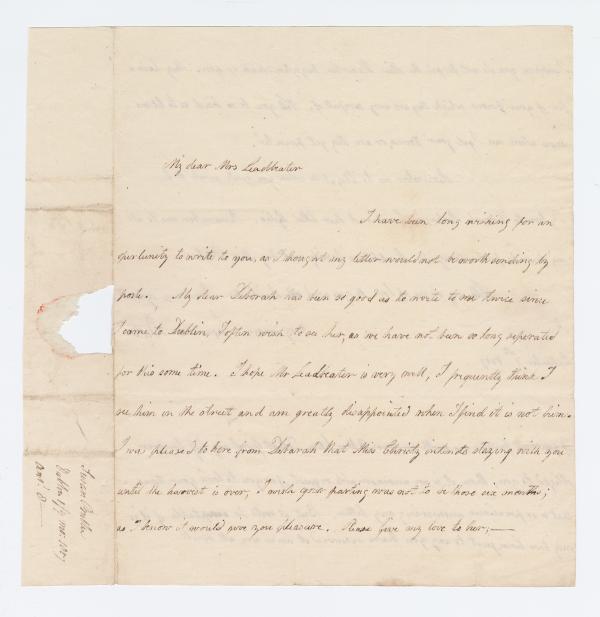 My dear Mrs Leadbeater
I have been long wishing for an
opurtunity to write to you, as I thought my letter would not be worth sending by
poste. My dear Deborah has been so good as to write to me twice since
I came to Dublin, I often wish to see her, as we have not been so long seperated
for this some time. I hope Mr Leadbeater is very well, I frequently think I
see him in the street and am greatly disappointed when I find it is not him.
I was pleased to here from Deborah that Miss Christy intends staying with you
until the harvest is over, I wish your parting was not to be these six months;
as I know it would give you pleasure. Please give my love to her;—
Dublin